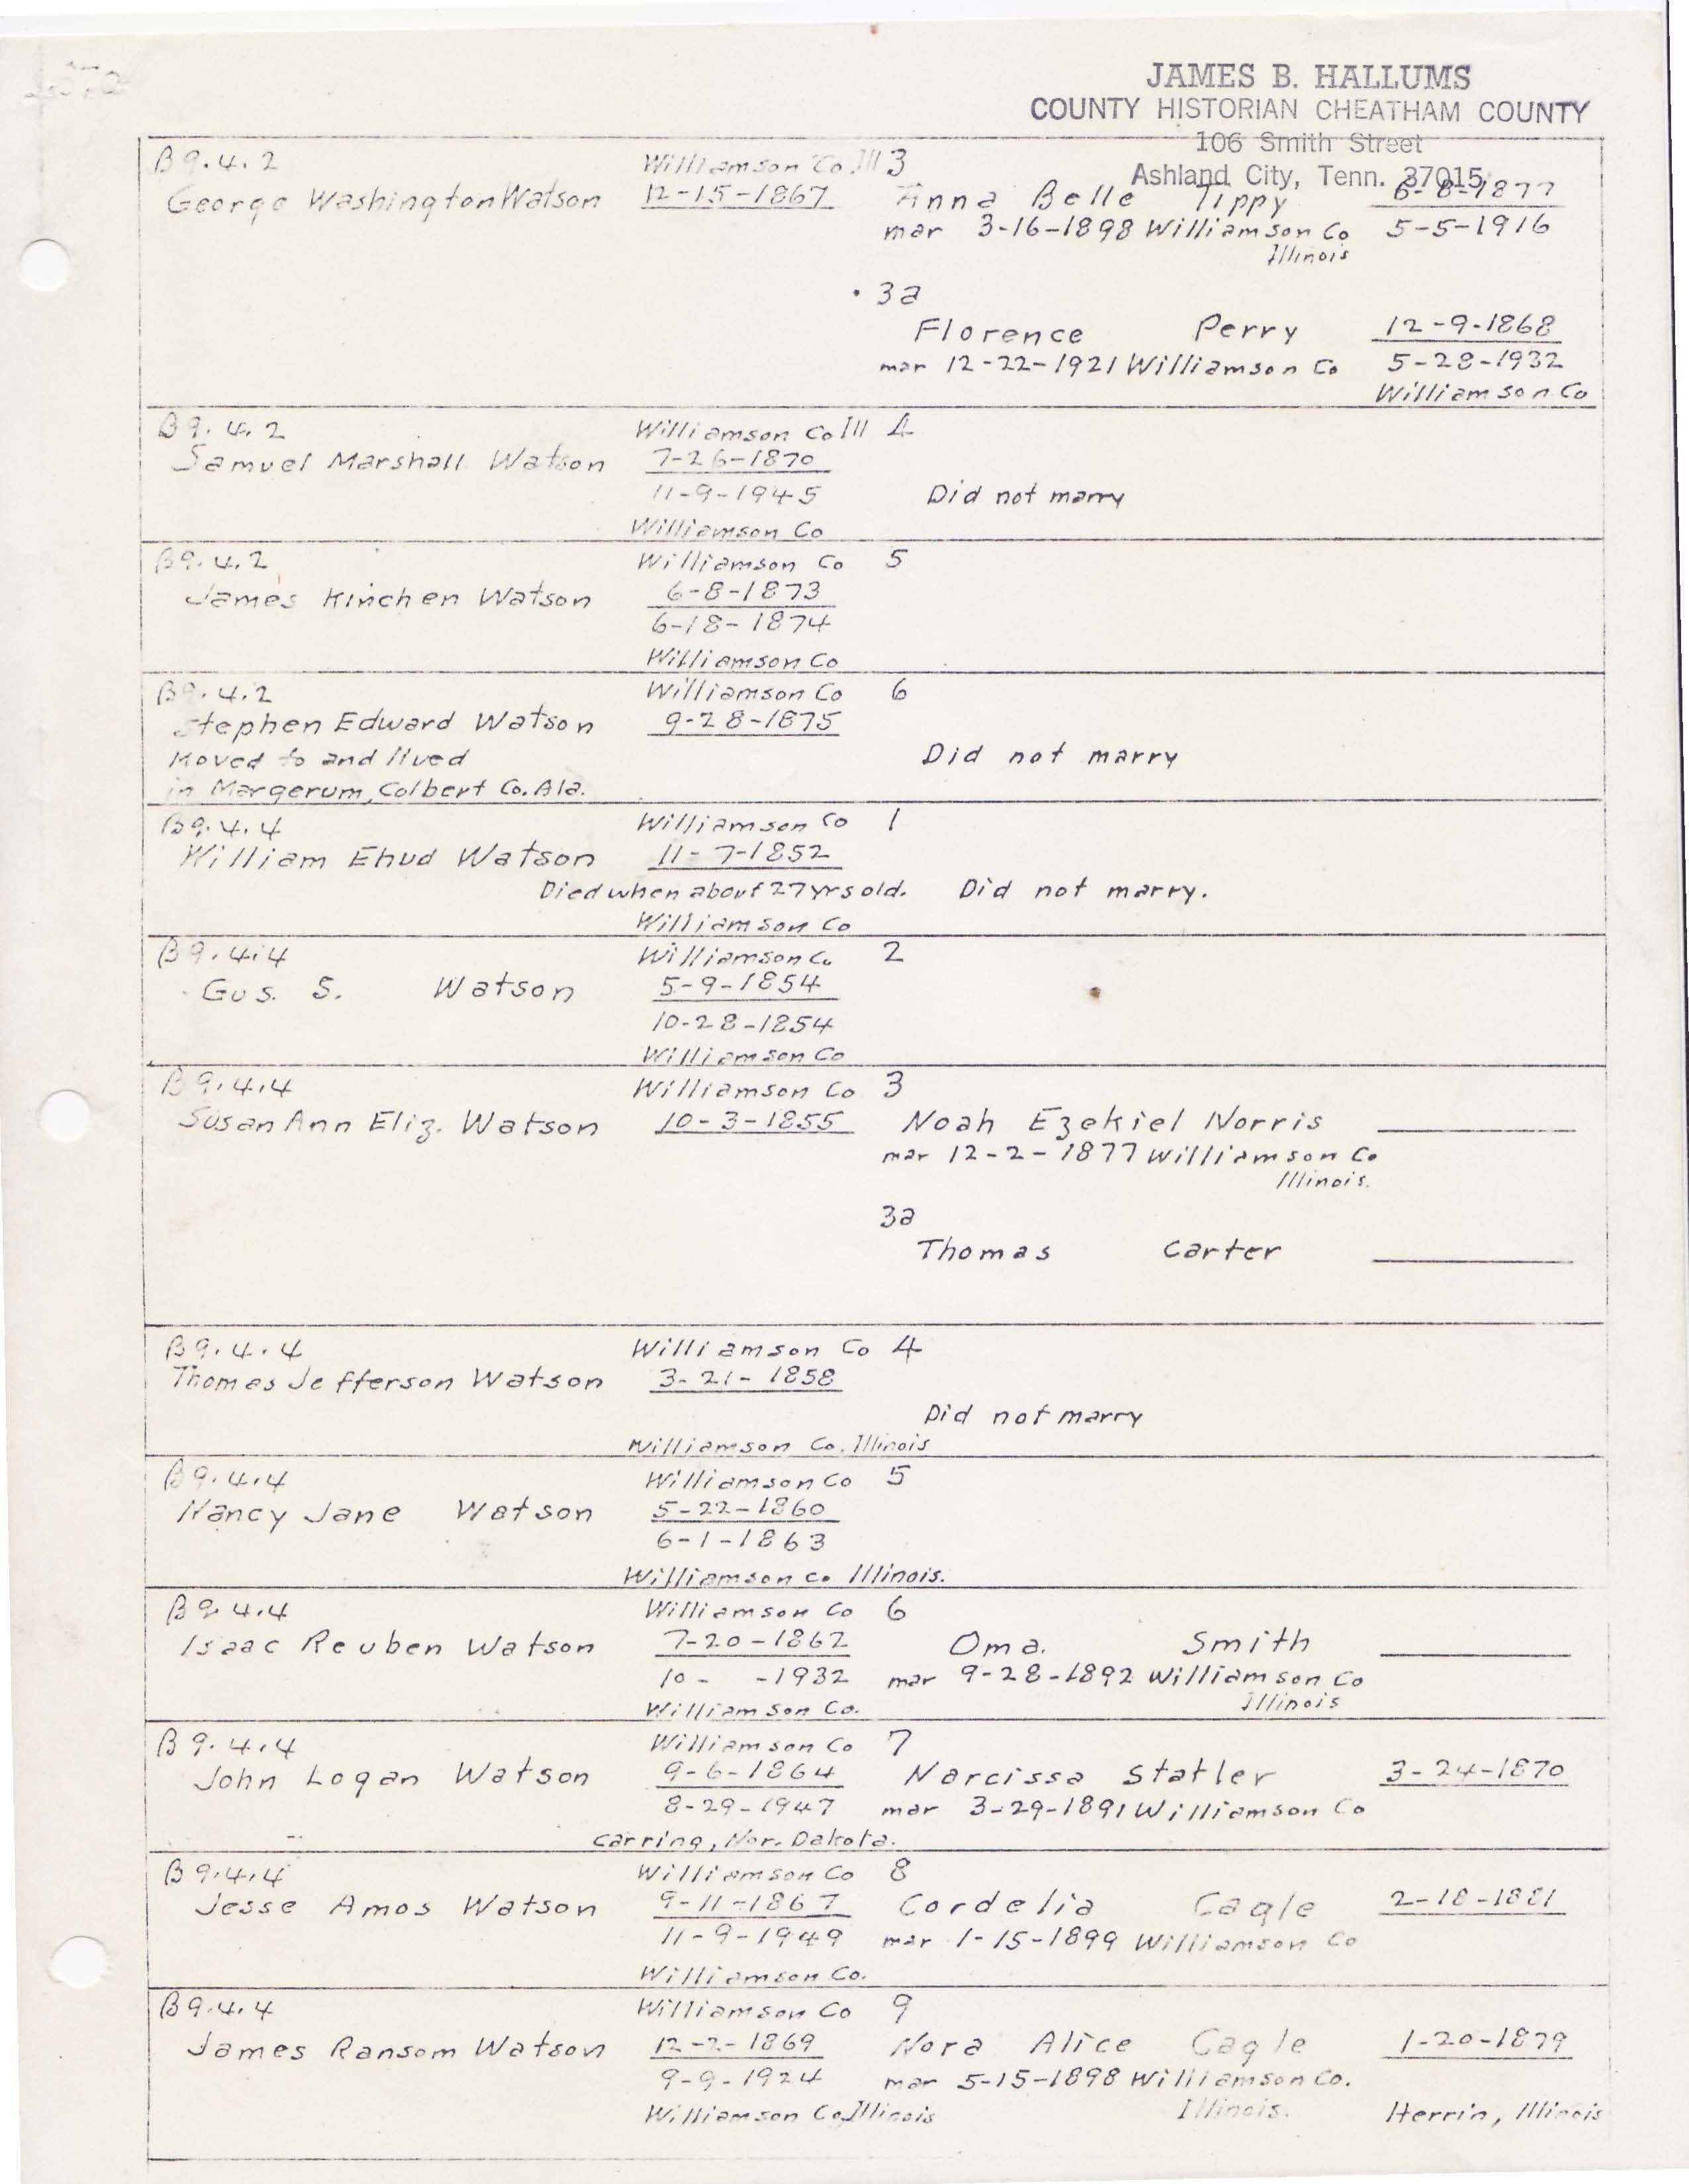 JAMES B. HALLUMS
COUNTY HISTORIAN CHEATHAM COUNTY
106 Smith Street
Ashland City, Tenn. 37015
B9.4.2 Williamson Co Ill 3
George Washington Watson 12-15-1867 Anna Belle Tippy 6-8-1877
mar 3-16-1898 Williamson Co 5-5-1916
Illinois
3a
Florence Perry 12-9-1868
mar 12-22-1921 Williamson Co 5-28-1932
Williamson Co
B9.4.2 Williamson Co Ill 4
Samuel Marshall Watson 7-26-1870
11-9-1945 Did not marry
Williamson Co
B9.4.2 Williamson Co 5
James Kinchen Watson 6-8-1873
6-18-1874
Williamson Co
B9.4.2 Williamson Co 6
Stephen Edward Watson 9-28-1875
Moved to and lived Did not marry
in Margerum, Colbert Co. Ala.
B9.4.4 Williamson Co 1
William Ehud Watson 11-7-1852
Died when about 27 yrs old. Did not marry.
Williamson Co
B9.4.4 Williamson Co 2
Gus. S. Watson 5-9-1854
10-28-1854
Williamson Co
B9.4.4 Williamson Co 3
Susan Ann Eliz. Watson 10-3-1855 Noah Ezekiel Norris
mar 12-2-1877 Williamson Co
Illinois.
3a
Thomas Carter
B9.4.4 Williamson Co 4
Thomas Jefferson Watson 3-21-1858
Did not marry
Williamson Co. Illinois
B9.4.4 Williamson Co 5
Nancy Jane Watson 5-22-1860
6-1-1863
Williamson Co Illinois.
B9.4.4 Williamson Co 6
Isaac Reuben Watson 7-20-1862 Oma. Smith
10- -1932 mar 9-28-1892 Williamson Co
Williamson Co. Illinois
B9.4.4 Williamson Co 7
John Logan Watson 9-6-1864 Narcissa Statler 3-24-1870
8-29-1947 mar 3-29-1891 Williamson Co
Carring, Nor. Dakota.
B9.4.4 Williamson Co 8
Jesse Amos Watson 9-11-1867 Cordelia Cagle 2-18-1881
11-9-1949 mar 1-15-1899 Williamson Co
Williamson Co.
B9.4.4 Williamson Co 9
James Ransom Watson 12-2-1869 Nora Alice Cagle 1-20-1879
9-9-1924 mar 5-15-1898 Williamson Co.
Williamson Co, Illinois Illinois. Herrin, Illinois